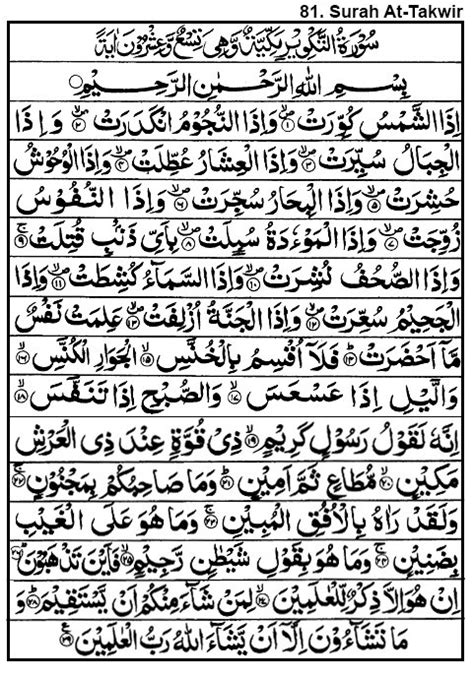 81. Surah At-Takwir
سُوْرَةُ التَّكْوِيْرِ مَكِّيَّةٌ وَّهِيَ تِسْعٌ وَّعِشْرُوْنَ اٰيَةً
بِسْمِ اللهِ الرَّحْمٰنِ الرَّحِيْمِ
اِذَا الشَّمْسُ كُوِّرَتْ ۝۱ وَاِذَا النُّجُوْمُ انْكَدَرَتْ ۝۲ وَاِذَا
الْجِبَالُ سُيِّرَتْ ۝۳ وَاِذَا الْعِشَارُ عُطِّلَتْ ۝۴ وَاِذَا الْوُحُوْشُ
حُشِرَتْ ۝۵ وَاِذَا الْبِحَارُ سُجِّرَتْ ۝۶ وَاِذَا النُّفُوْسُ
زُوِّجَتْ ۝۷ وَاِذَا الْمَوْءٗدَةُ سُىِٕلَتْ ۝۸ بِاَيِّ ذَنْۢبٍ قُتِلَتْ ۝۹
وَاِذَا الصُّحُفُ نُشِرَتْ ۝۱۰ وَاِذَا السَّمَآءُ كُشِطَتْ ۝۱۱ وَاِذَا
الْجَحِيْمُ سُعِّرَتْ ۝۱۲ وَاِذَا الْجَنَّةُ اُزْلِفَتْ ۝۱۳ عَلِمَتْ نَفْسٌ
مَّاۤ اَحْضَرَتْ ۝۱۴ فَلَاۤ اُقْسِمُ بِالْخُنَّسِ ۝۱۵ الْجَوَارِ الْكُنَّسِ ۝۱۶
وَالَّيْلِ اِذَا عَسْعَسَ ۝۱۷ وَالصُّبْحِ اِذَا تَنَفَّسَ ۝۱۸
اِنَّهٗ لَقَوْلُ رَسُوْلٍ كَرِيْمٍ ۝۱۹ ذِيْ قُوَّةٍ عِنْدَ ذِي الْعَرْشِ
مَكِيْنٍ ۝۲۰ مُّطَاعٍ ثَمَّ اَمِيْنٍ ۝۲۱ وَمَا صَاحِبُكُمْ بِمَجْنُوْنٍ ۝۲۲
وَلَقَدْ رَاٰهُ بِالْاُفُقِ الْمُبِيْنِ ۝۲۳ وَمَا هُوَ عَلَى الْغَيْبِ
بِضَنِيْنٍ ۝۲۴ وَمَا هُوَ بِقَوْلِ شَيْطٰنٍ رَّجِيْمٍ ۝۲۵ فَاَيْنَ تَذْهَبُوْنَ ۝۲۶
اِنْ هُوَ اِلَّا ذِكْرٌ لِّلْعٰلَمِيْنَ ۝۲۷ لِمَنْ شَآءَ مِنْكُمْ اَنْ يَّسْتَقِيْمَ ۝۲۸ وَ
مَا تَشَآءُوْنَ اِلَّاۤ اَنْ يَّشَآءَ اللهُ رَبُّ الْعٰلَمِيْنَ ۝۲۹